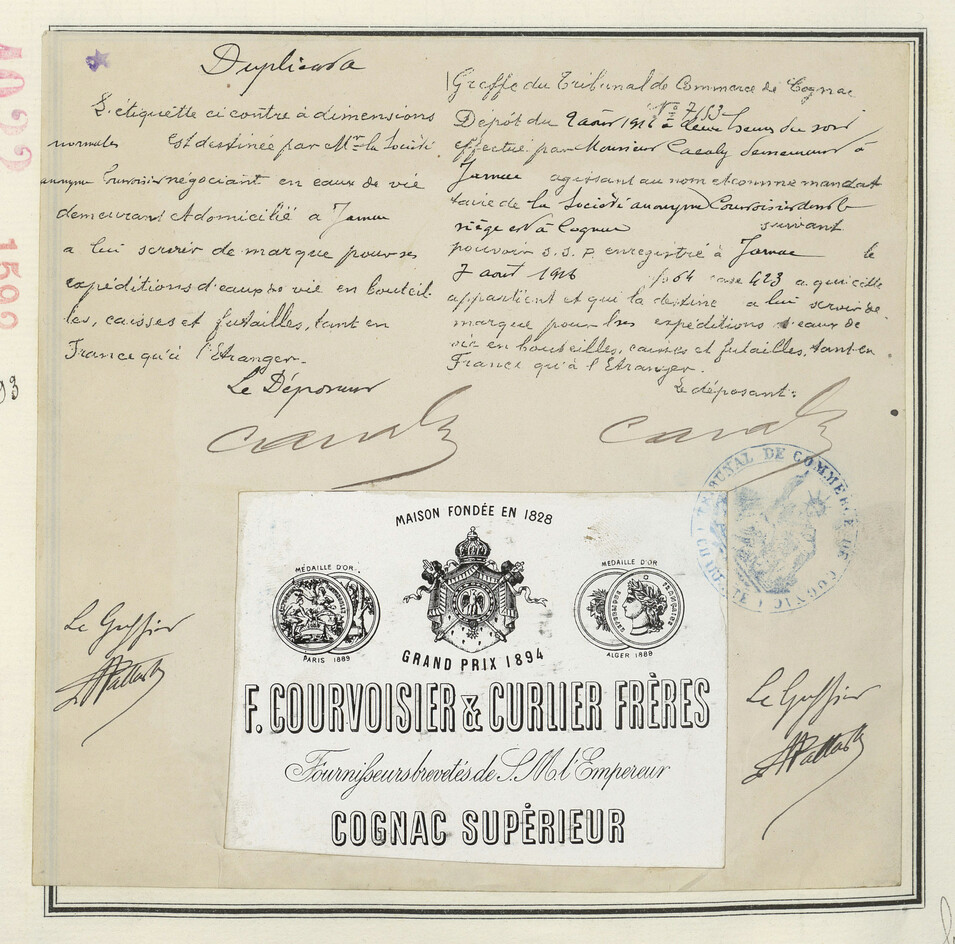 Duplicata
L'étiquette ci contre à dimensions
normales est destinée par Mr la Société
anonyme Courvoisier négociant en eaux de vie
demeurant et domicilié à Jarnac
a lui servir de marque pour ses
expéditions d'eaux de vie en bouteil-
les, caisses et futailles, tant en
France qu'à l'Etranger.
Le Déposeur
Greffe du Tribunal de Commerce de Cognac
No 7153
Dépôt du 9 août 1916 à deux heures du soir
effectué par Monsieur demeurant à
Jarnac agissant au nom et comme mandat
taire de la Société anonyme Courvoisier dont le
siège est à Cognac suivant
pouvoir S.S.P. enregistré à Jarnac le
7 août 1916 fo 64 case 423 a qui cette
appartient et qui la destine a lui servir de
marque pour les expéditions d'eaux de
vie en bouteilles, caisses et futailles, tant en
France qu'à l'Etranger.
Le déposant:
TRIBUNAL DE COMMERCE DE COGNAC
(CHARENTE)
MAISON FONDÉE EN 1828
MÉDAILLE D'OR
PARIS 1889
GRAND PRIX 1894
MEDAILLE D'OR
REPUBLIQUE FRANÇAISE
ALGER 1888
F. COURVOISIER & CURLIER FRÈRES
Fournisseurs brevetés de S.M. l'Empereur
COGNAC SUPÉRIEUR
Le Greffier
Le Greffier
1592
93